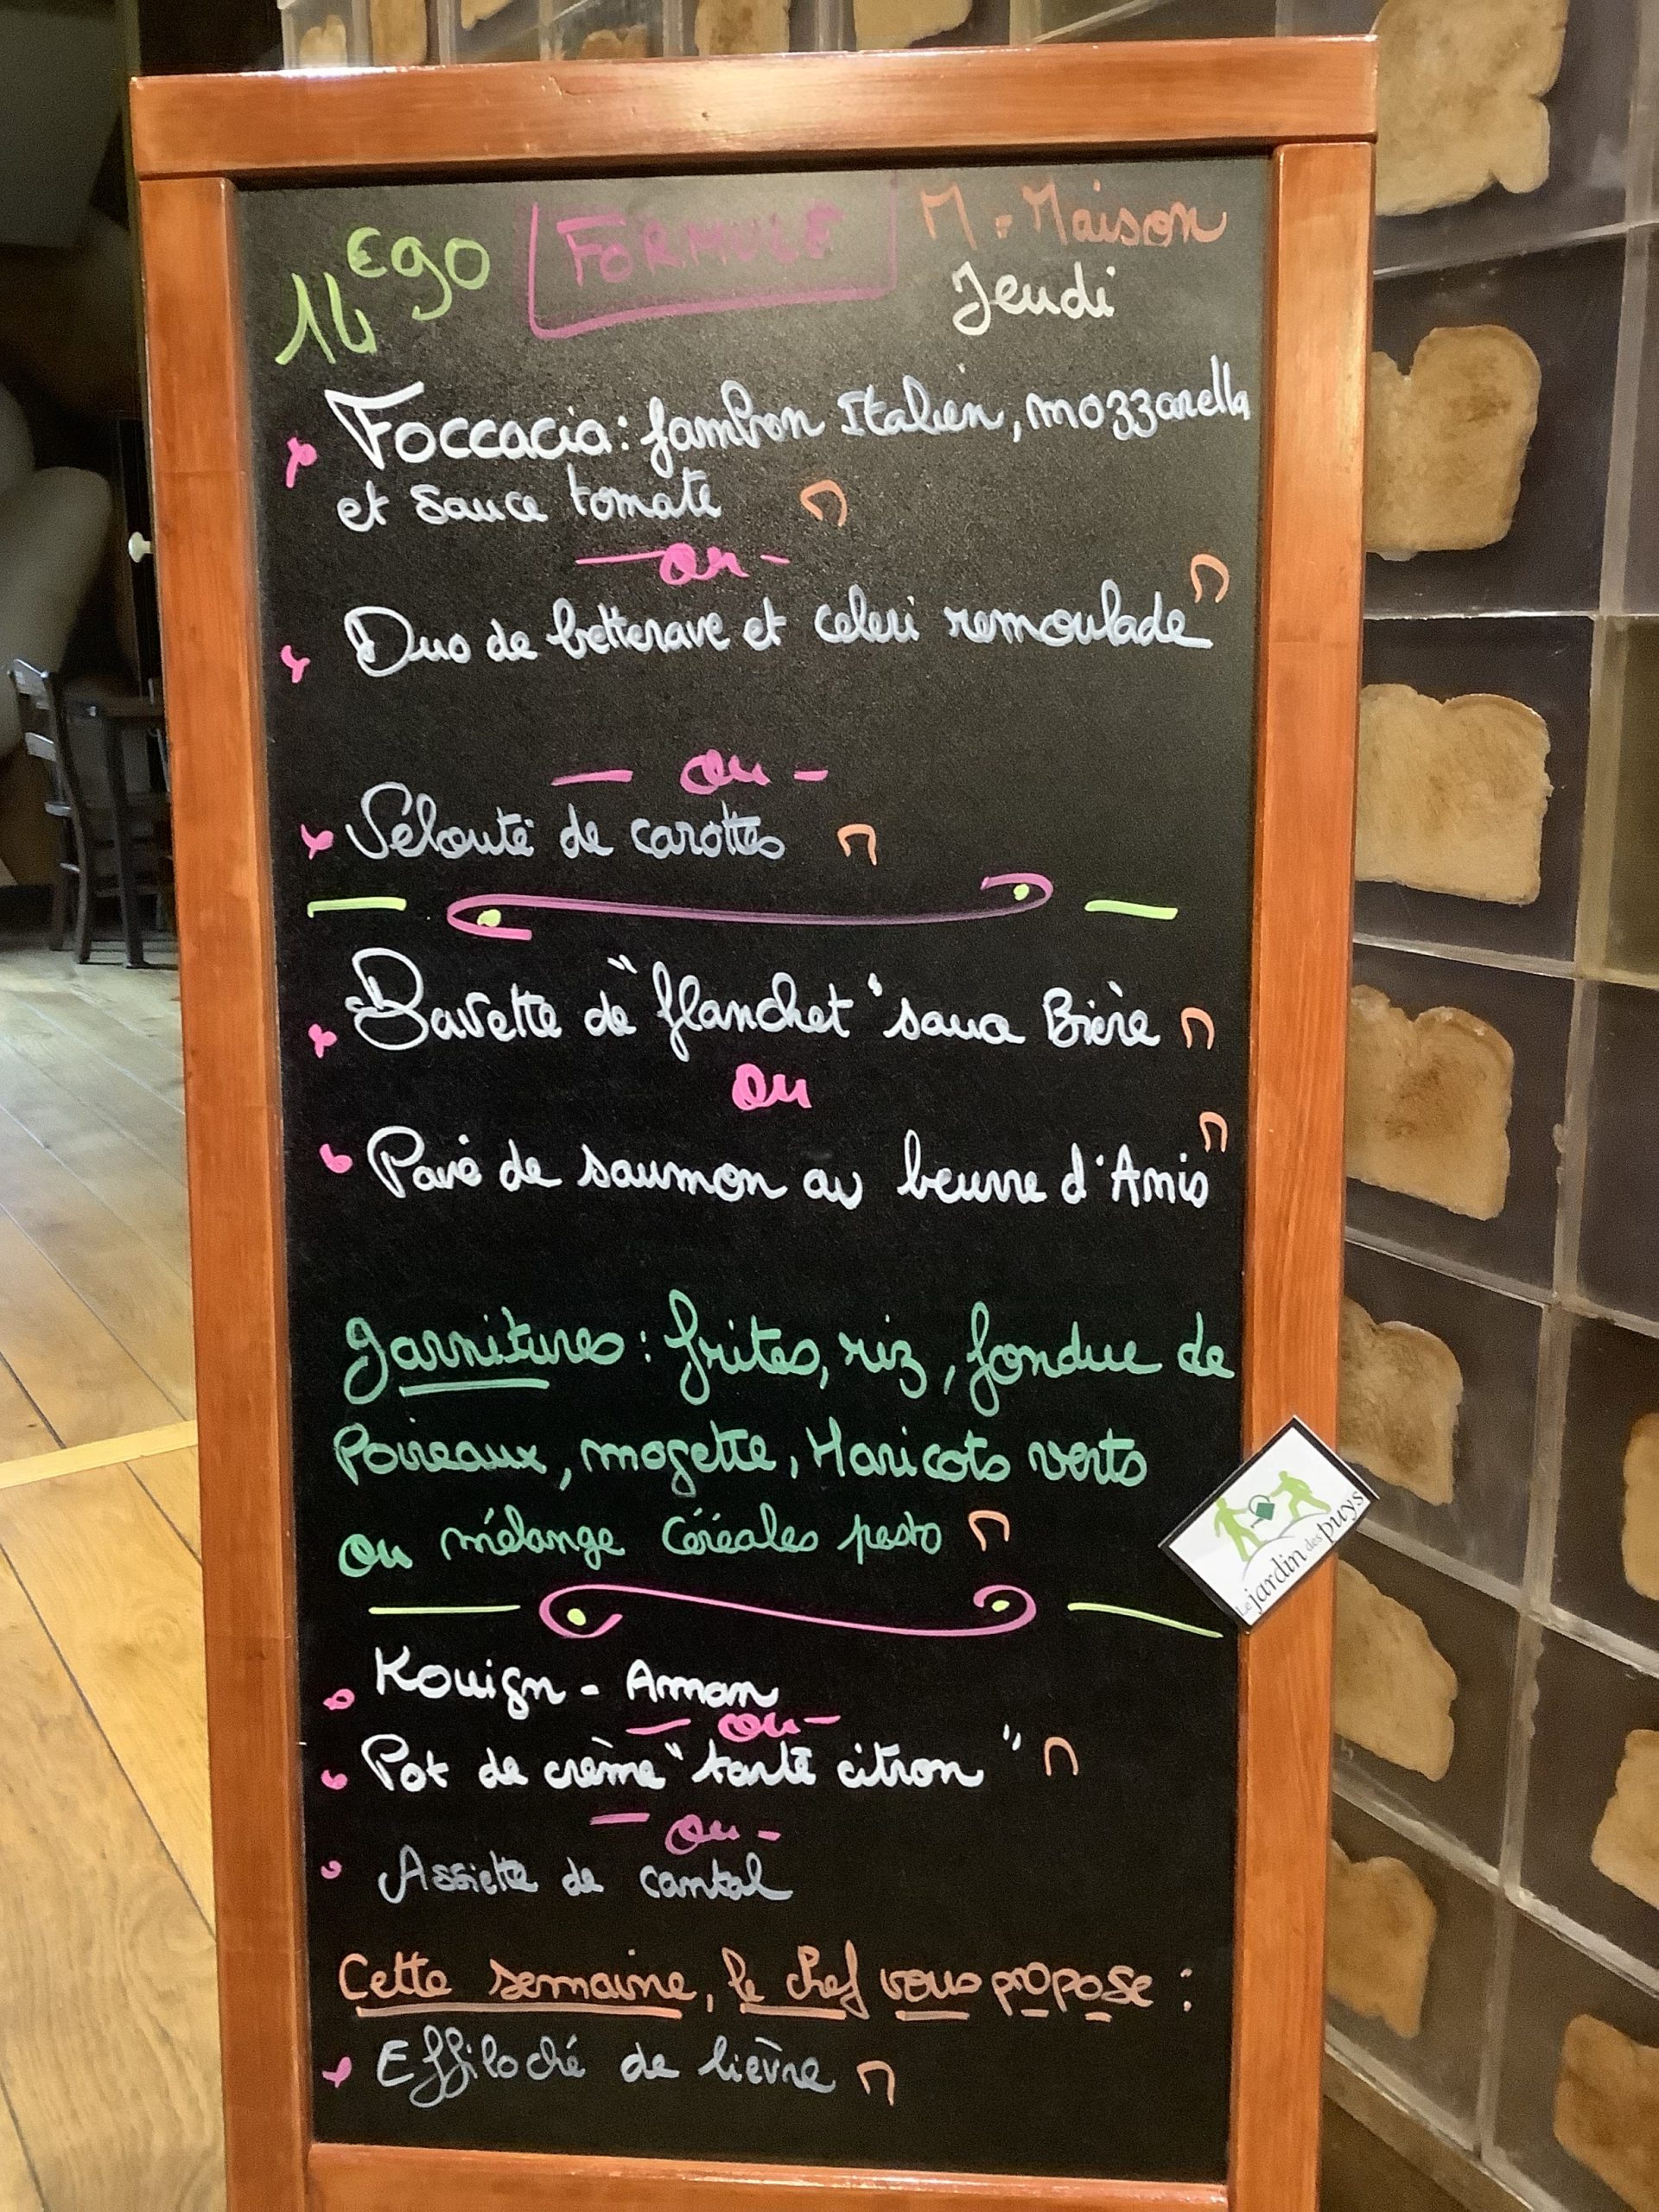 14€90 FORMULE M = Maison
Jeudi
Foccacia : Jambon Italien, mozzarella
et sauce tomate M
- ou -
Duo de betterave et celeri remoulade M
- ou -
Velouté de carottes M
Bavette de "flanchet" sauce Bière M
ou
Pavé de saumon au beurre d'Anis M
garnitures : frites, riz, fondue de
Poireaux, mogette, Haricots verts
ou mélange céréales pesto M
Kouign - Aman
- ou -
Pot de crème "tarte citron" M
- ou -
Assiette de cantal
Cette semaine, le chef vous propose :
Effiloché de lièvre M
Le jardin des puys